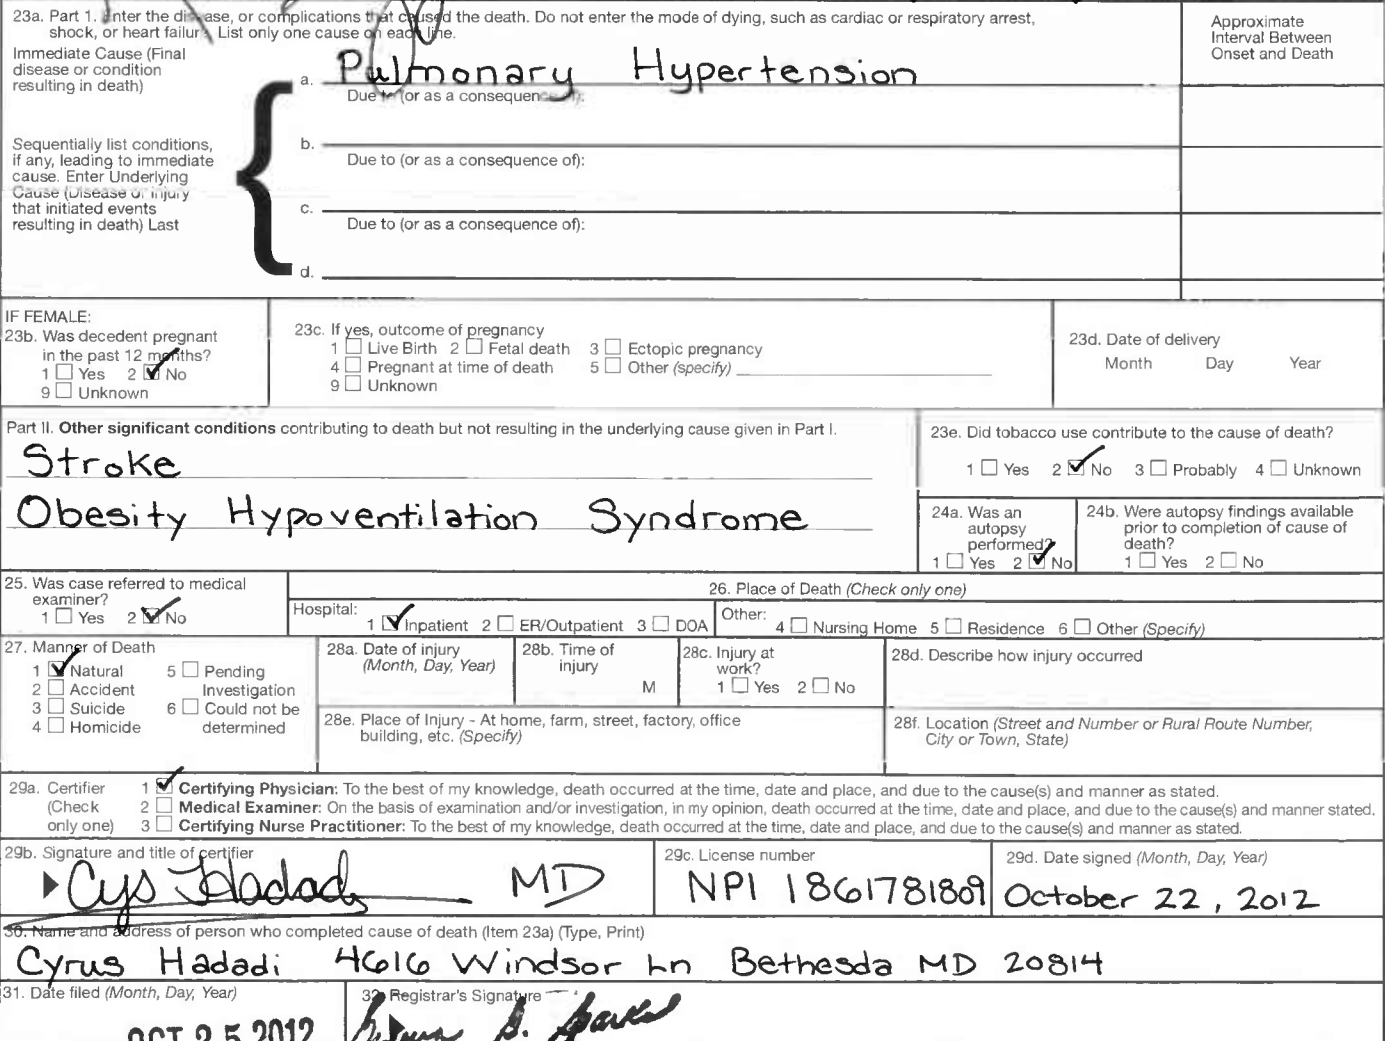 23a. Part 1. Enter the disease, or complications that caused the death. Do not enter the mode of dying, such as cardiac or respiratory arrest,
shock, or heart failure. List only one cause on each line.
Approximate
Interval Between
Onset and Death
Immediate Cause (Final
disease or condition
resulting in death)
a. Pulmonary Hypertension
Due to (or as a consequence of):
Sequentially list conditions,
if any, leading to immediate
cause. Enter Underlying
Cause (Disease or injury
that initiated events
resulting in death) Last
b.
Due to (or as a consequence of):
c.
Due to (or as a consequence of):
d.
IF FEMALE:
23b. Was decedent pregnant
in the past 12 months?
1 ☐ Yes 2 ☑ No
9 ☐ Unknown
23c. If yes, outcome of pregnancy
1 ☐ Live Birth 2 ☐ Fetal death 3 ☐ Ectopic pregnancy
4 ☐ Pregnant at time of death 5 ☐ Other (specify)
9 ☐ Unknown
23d. Date of delivery
Month Day Year
Part II. Other significant conditions contributing to death but not resulting in the underlying cause given in Part I.
Stroke
Obesity Hypoventilation Syndrome
23e. Did tobacco use contribute to the cause of death?
1 ☐ Yes 2 ☑ No 3 ☐ Probably 4 ☐ Unknown
24a. Was an
autopsy
performed?
1 ☐ Yes 2 ☑ No
24b. Were autopsy findings available
prior to completion of cause of
death?
1 ☐ Yes 2 ☐ No
25. Was case referred to medical
examiner?
1 ☐ Yes 2 ☑ No
26. Place of Death (Check only one)
Hospital: 1 ☑ Inpatient 2 ☐ ER/Outpatient 3 ☐ DOA
Other: 4 ☐ Nursing Home 5 ☐ Residence 6 ☐ Other (Specify)
27. Manner of Death
1 ☑ Natural 5 ☐ Pending
2 ☐ Accident Investigation
3 ☐ Suicide 6 ☐ Could not be
4 ☐ Homicide determined
28a. Date of injury
(Month, Day, Year)
28b. Time of
injury
M
28c. Injury at
work?
1 ☐ Yes 2 ☐ No
28d. Describe how injury occurred
28e. Place of Injury - At home, farm, street, factory, office
building, etc. (Specify)
28f. Location (Street and Number or Rural Route Number,
City or Town, State)
29a. Certifier
(Check
only one)
1 ☑ Certifying Physician: To the best of my knowledge, death occurred at the time, date and place, and due to the cause(s) and manner as stated.
2 ☐ Medical Examiner: On the basis of examination and/or investigation, in my opinion, death occurred at the time, date and place, and due to the cause(s) and manner stated.
3 ☐ Certifying Nurse Practitioner: To the best of my knowledge, death occurred at the time, date and place, and due to the cause(s) and manner as stated.
29b. Signature and title of certifier
MD
29c. License number
NPI 1861781809
29d. Date signed (Month, Day, Year)
October 22, 2012
30. Name and address of person who completed cause of death (Item 23a) (Type, Print)
Cyrus Hadadi 4616 Windsor Ln Bethesda MD 20814
31. Date filed (Month, Day, Year)
OCT 25 2012
32. Registrar's Signature